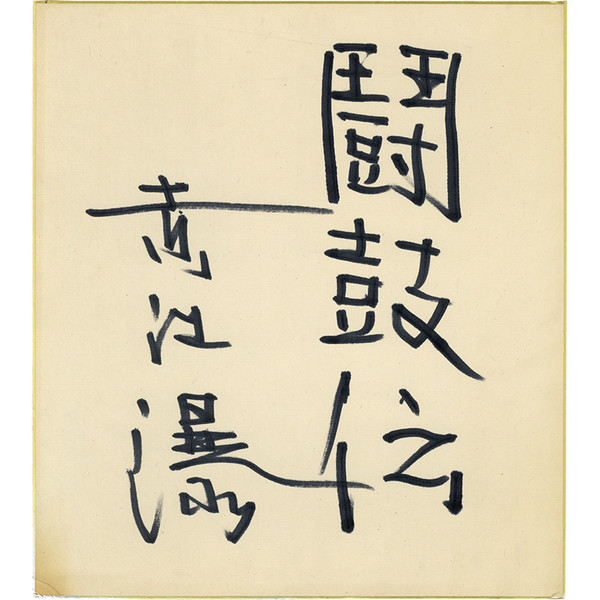 鬪鼓伝
赤江瀑